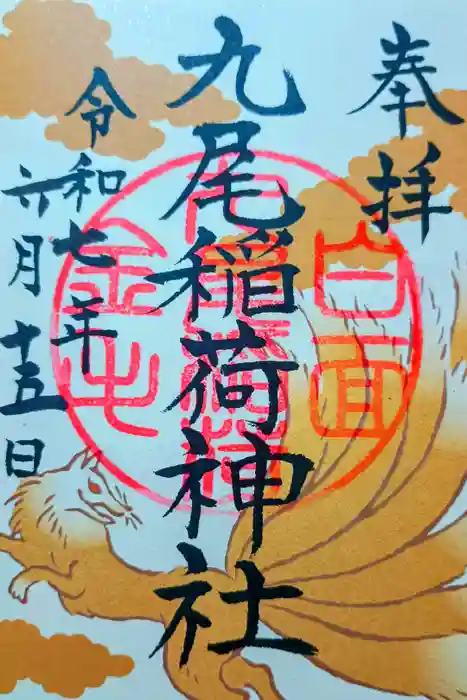 奉拝
九尾稲荷神社
令和七年
六月十五日
白面
金毛